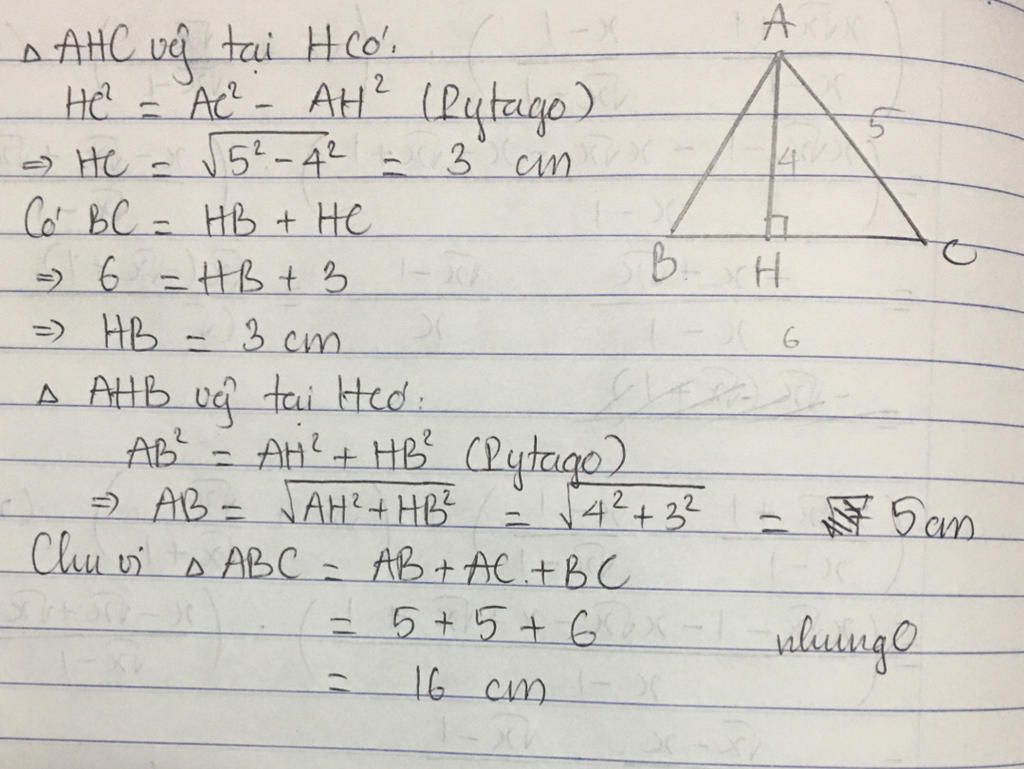 Δ AHC vg̃ tại H có:
HC² = AC² - AH² (Pytago)
⇒ HC = √(5² - 4²) = 3 cm
Có BC = HB + HC
⇒ 6 = HB + 3
⇒ HB = 3 cm
Δ AHB vg̃ tại H có:
AB² = AH² + HB² (Pytago)
⇒ AB = √(AH² + HB²) = √(4² + 3²) = 5 cm
Chu vi Δ ABC = AB + AC + BC
= 5 + 5 + 6
= 16 cm
nhungO
A
5
4
B H C
6